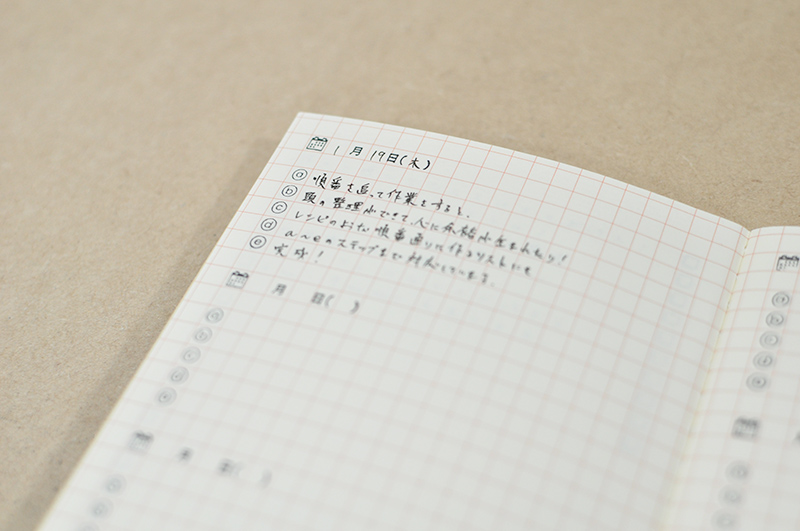 1月19日(木)
ⓐ 順番を追って作業をすると、
ⓑ 頭の整理ができて、心に余裕が生まれたり!
ⓒ レシピのような順番通りに作るリストにも
ⓓ a~eのステップまで対応しています。
ⓔ 完成!
月 日( )
ⓐ
ⓑ
ⓒ
ⓓ
ⓔ
月 日( )